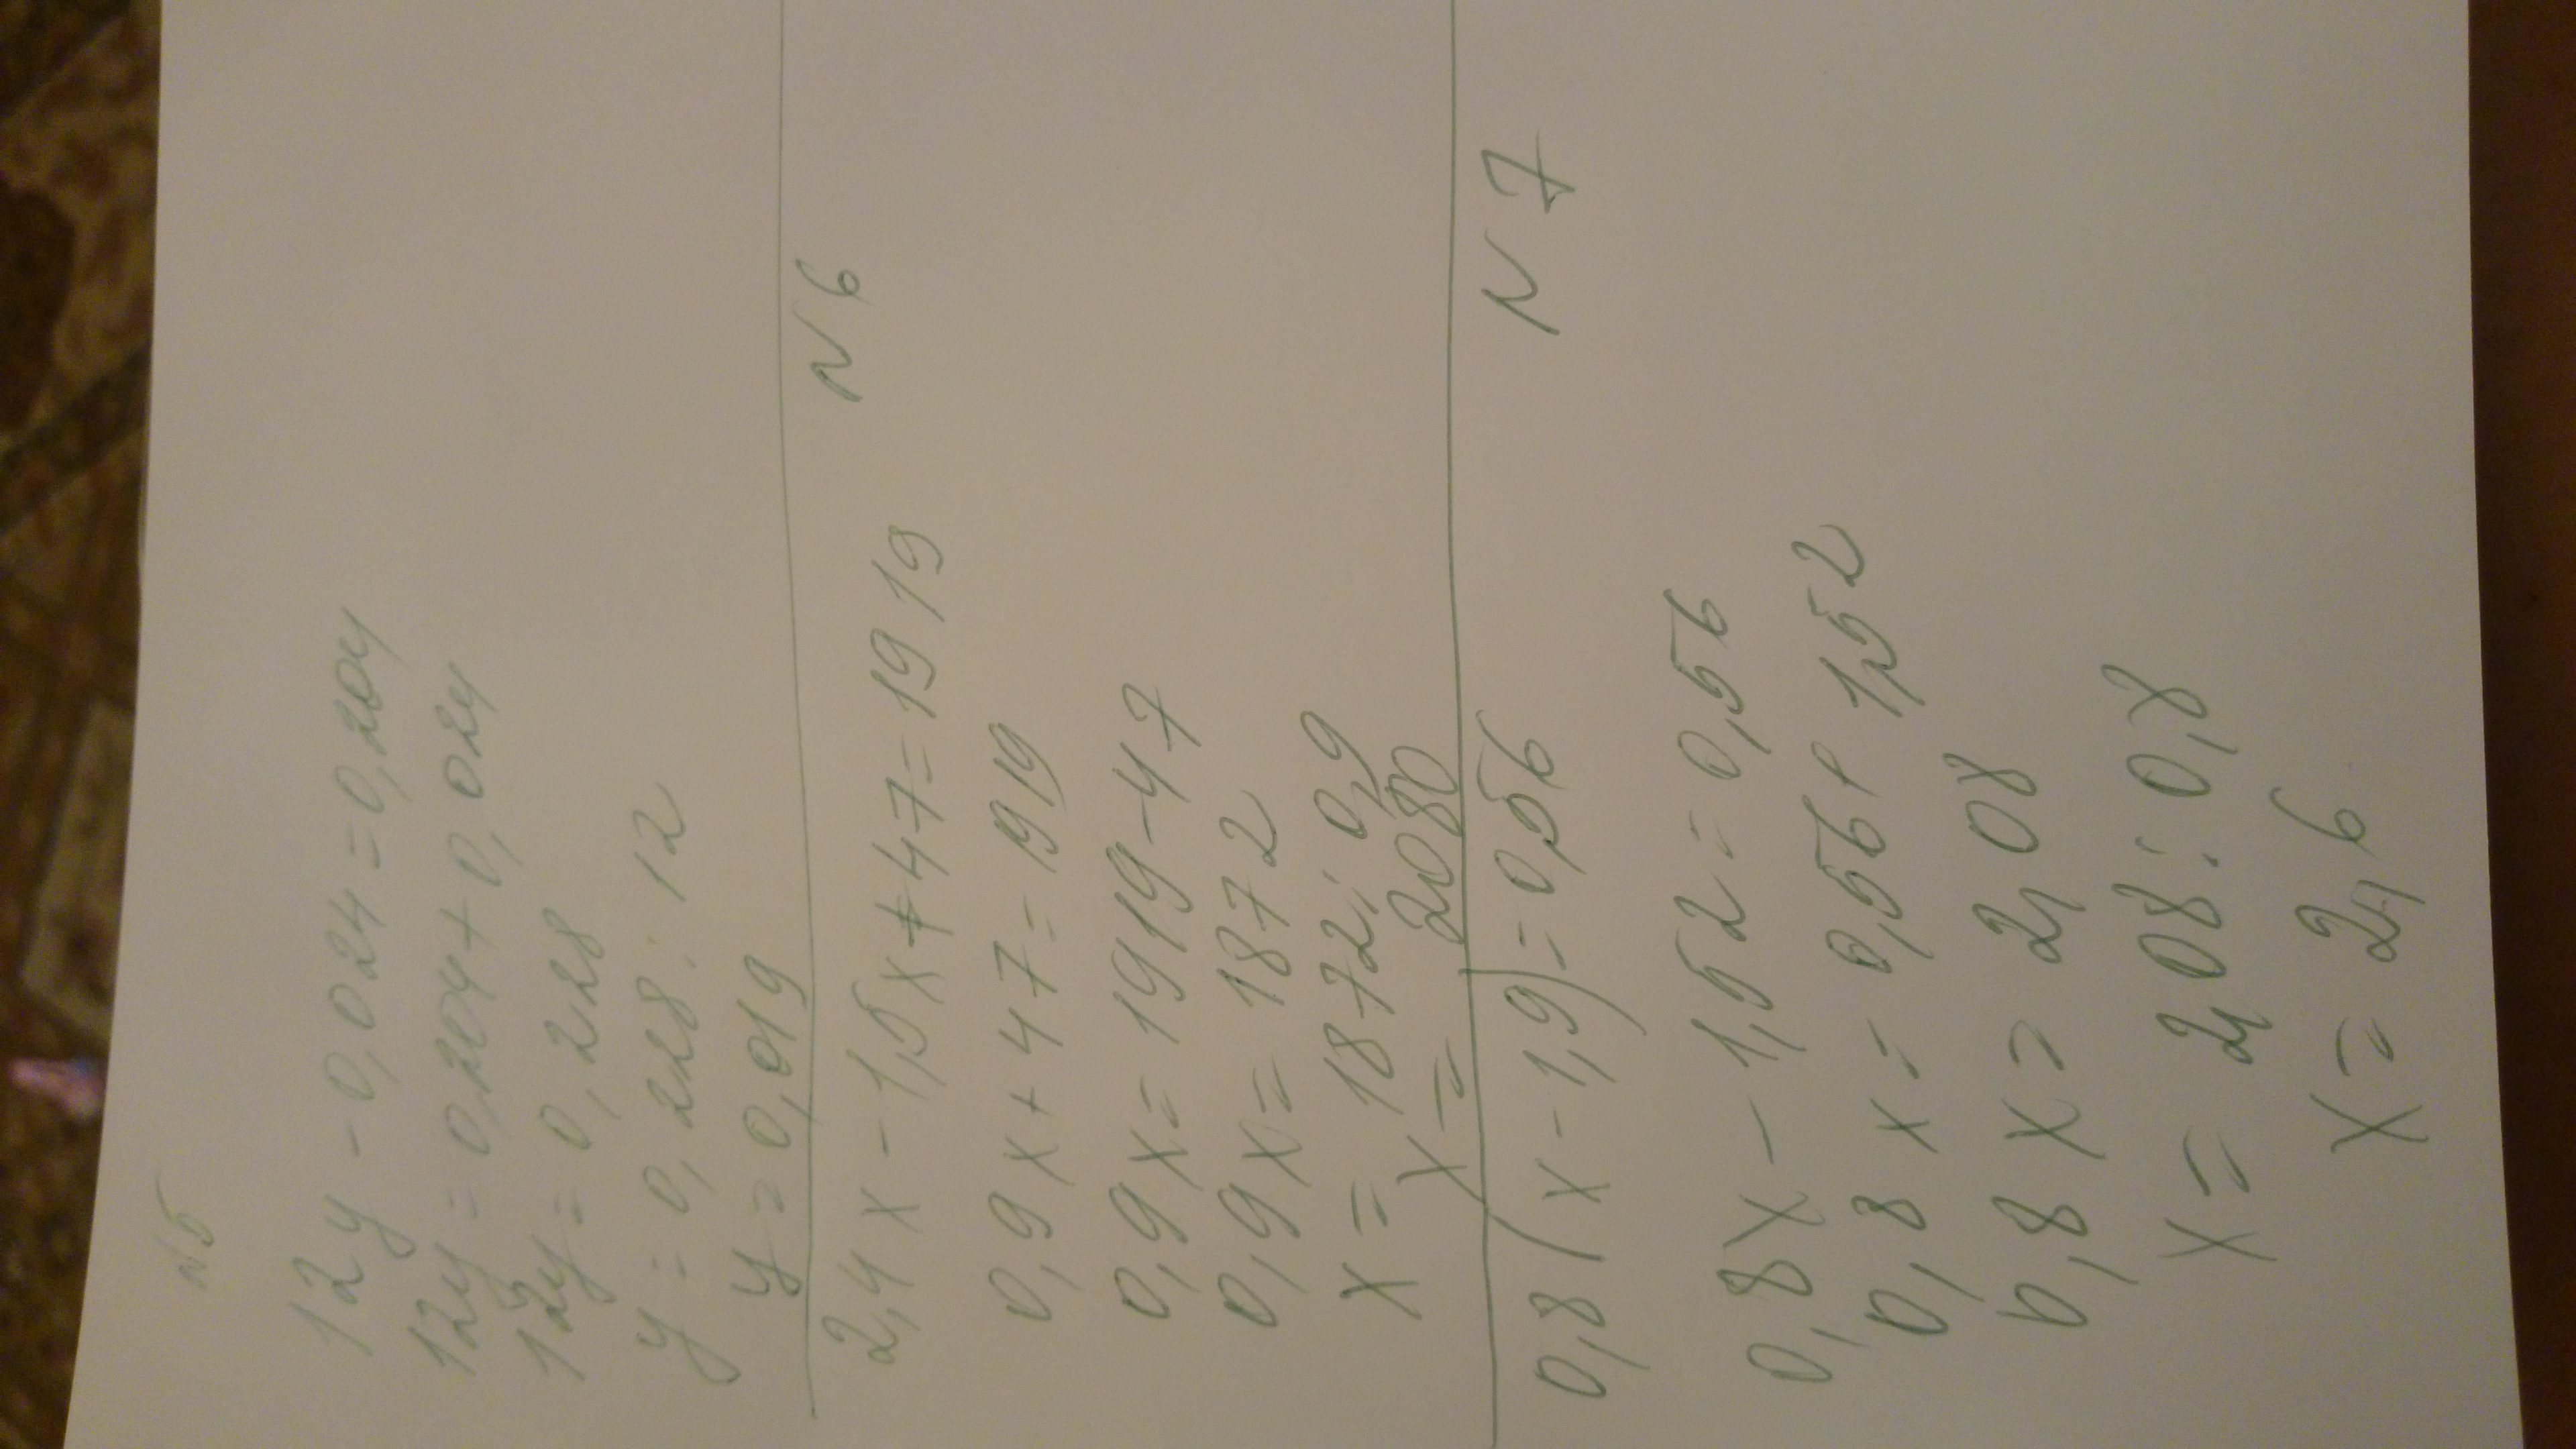 №5
12y - 0,024 = 0,204
12y = 0,204 + 0,024
12y = 0,228
y = 0,228 : 12
y = 0,019
N 6
2,4x - 1,5x + 47 = 1919
0,9x + 47 = 1919
0,9x = 1919 - 47
0,9x = 1872
x = 1872 : 0,9
x = 2080
N 7
0,8(x - 1,9) = 0,56
0,8x - 1,52 = 0,56
0,8x = 0,56 + 1,52
0,8x = 2,08
x = 2,08 : 0,8
x = 2,6